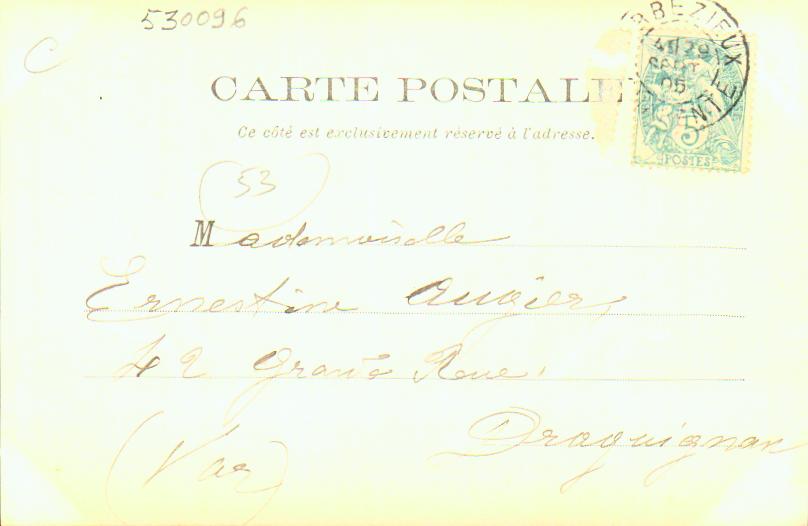 530096
C
BBEZIEUX
29
SEPT
05
NTE
5
POSTES
CARTE POSTALE
Ce côté est exclusivement réservé à l'adresse.
(53)
Mademoiselle
Ernestine Augier,
42 Grande Rue.
Draguignan
(Var)